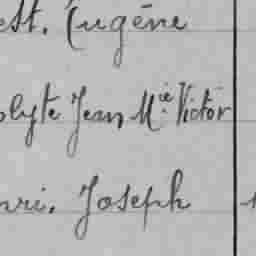 est. Eugène
olyte Jean Mie Victor
nri. Joseph